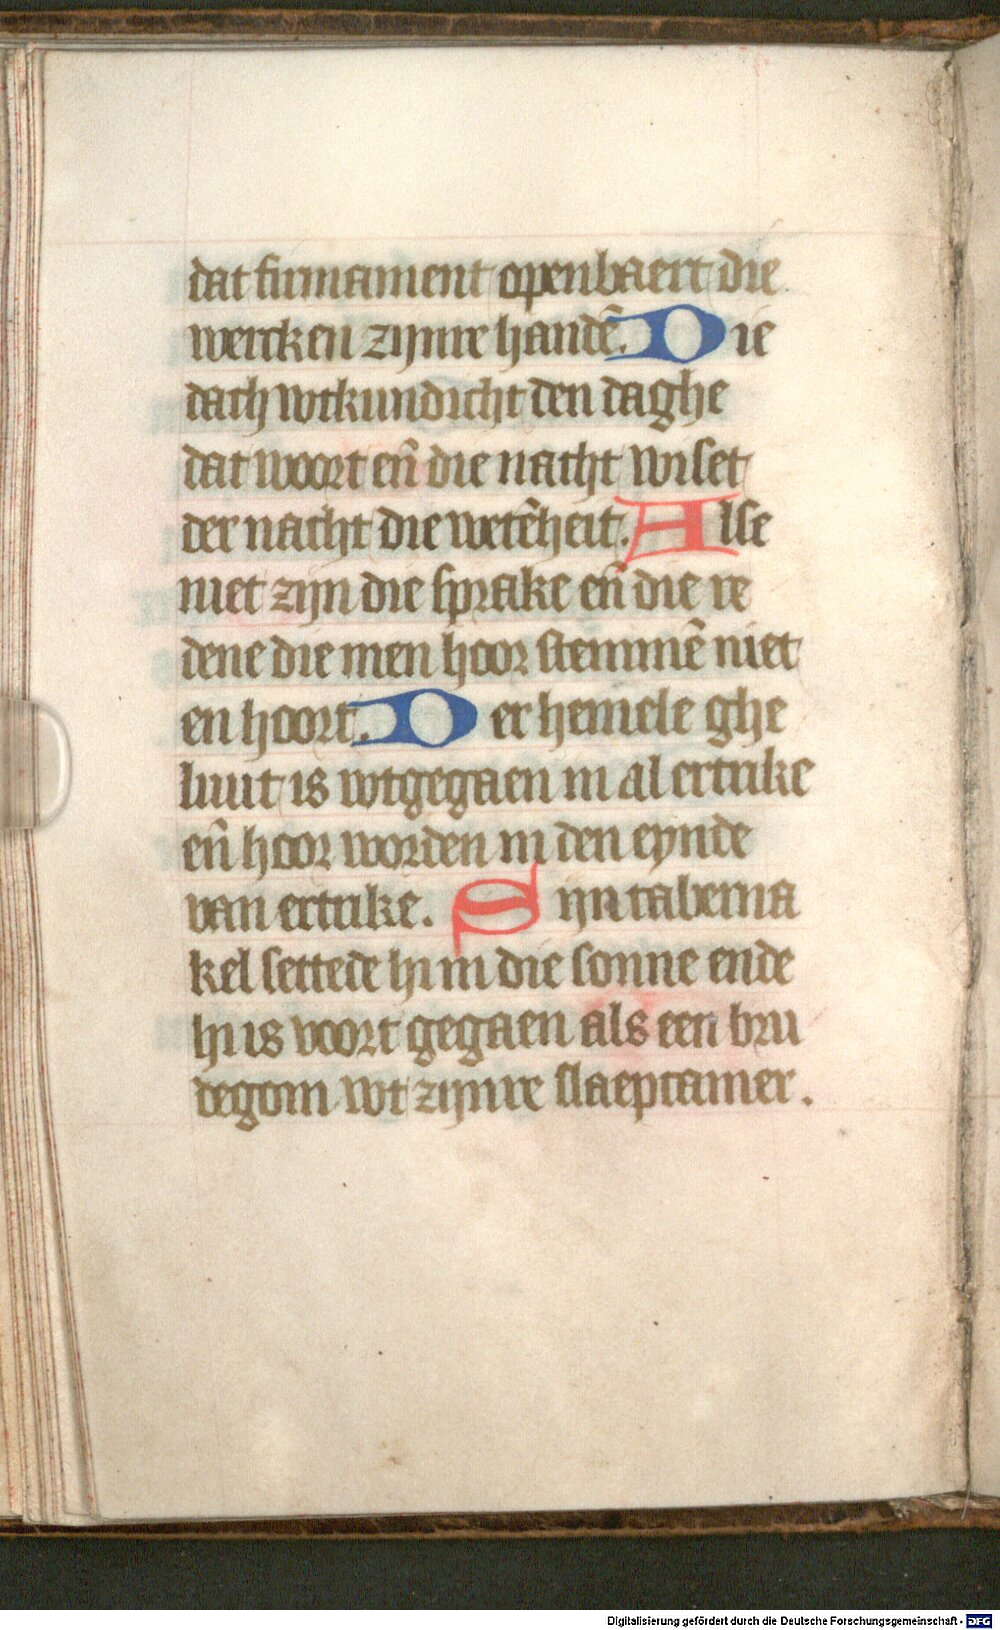 dat firmament openbaert die
wercken zijnre handē. Die
dach wtkundicht den daghe
dat woort eñ die nacht wiset
der nacht die wetēheit. Alse
niet zijn die sprake eñ die re
dene die men hoor stemmē niet
en hoort. Der hemele ghe
luut is wtgegaen in al ertrike
eñ hoor worden in den eynde
van ertrike. Sijn taberna
kel settede hi in die sonne ende
hi is voort gegaen als een bru
degom wt zijnre slaepcamer.
Digitalisierung gefördert durch die Deutsche Forschungsgemeinschaft - DFG